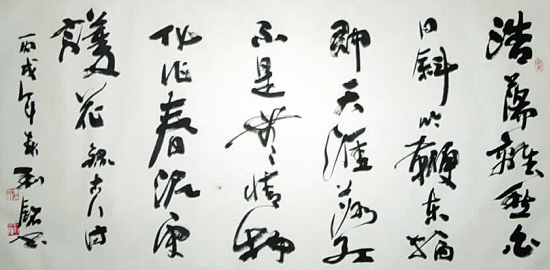 浩蕩離愁白
日斜吟鞭東指
即天涯落紅
不是無情物
化作春泥更
護花 錄古人詩
丙戌年春